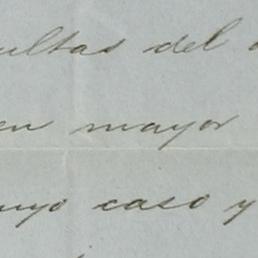 ultas del
en mayor
uyo caso y